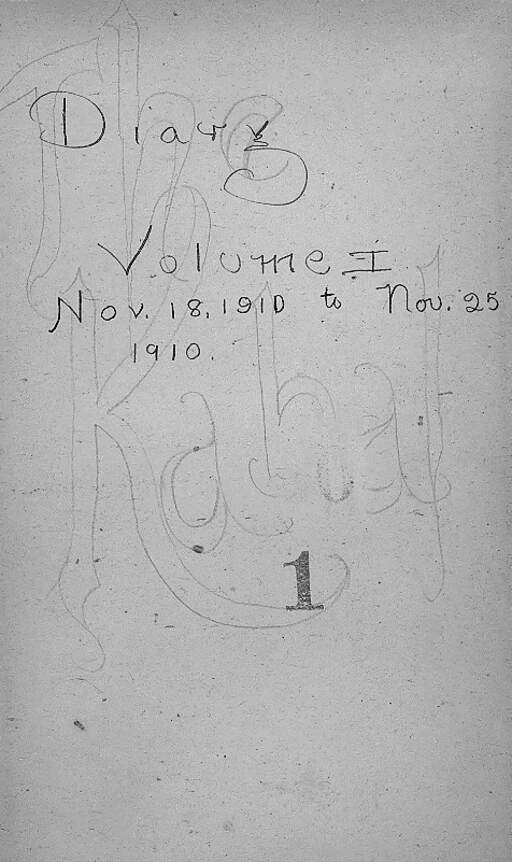 Diary
Volume I
Nov. 18, 1910 to Nov. 25
1910.
The
Kabal
1